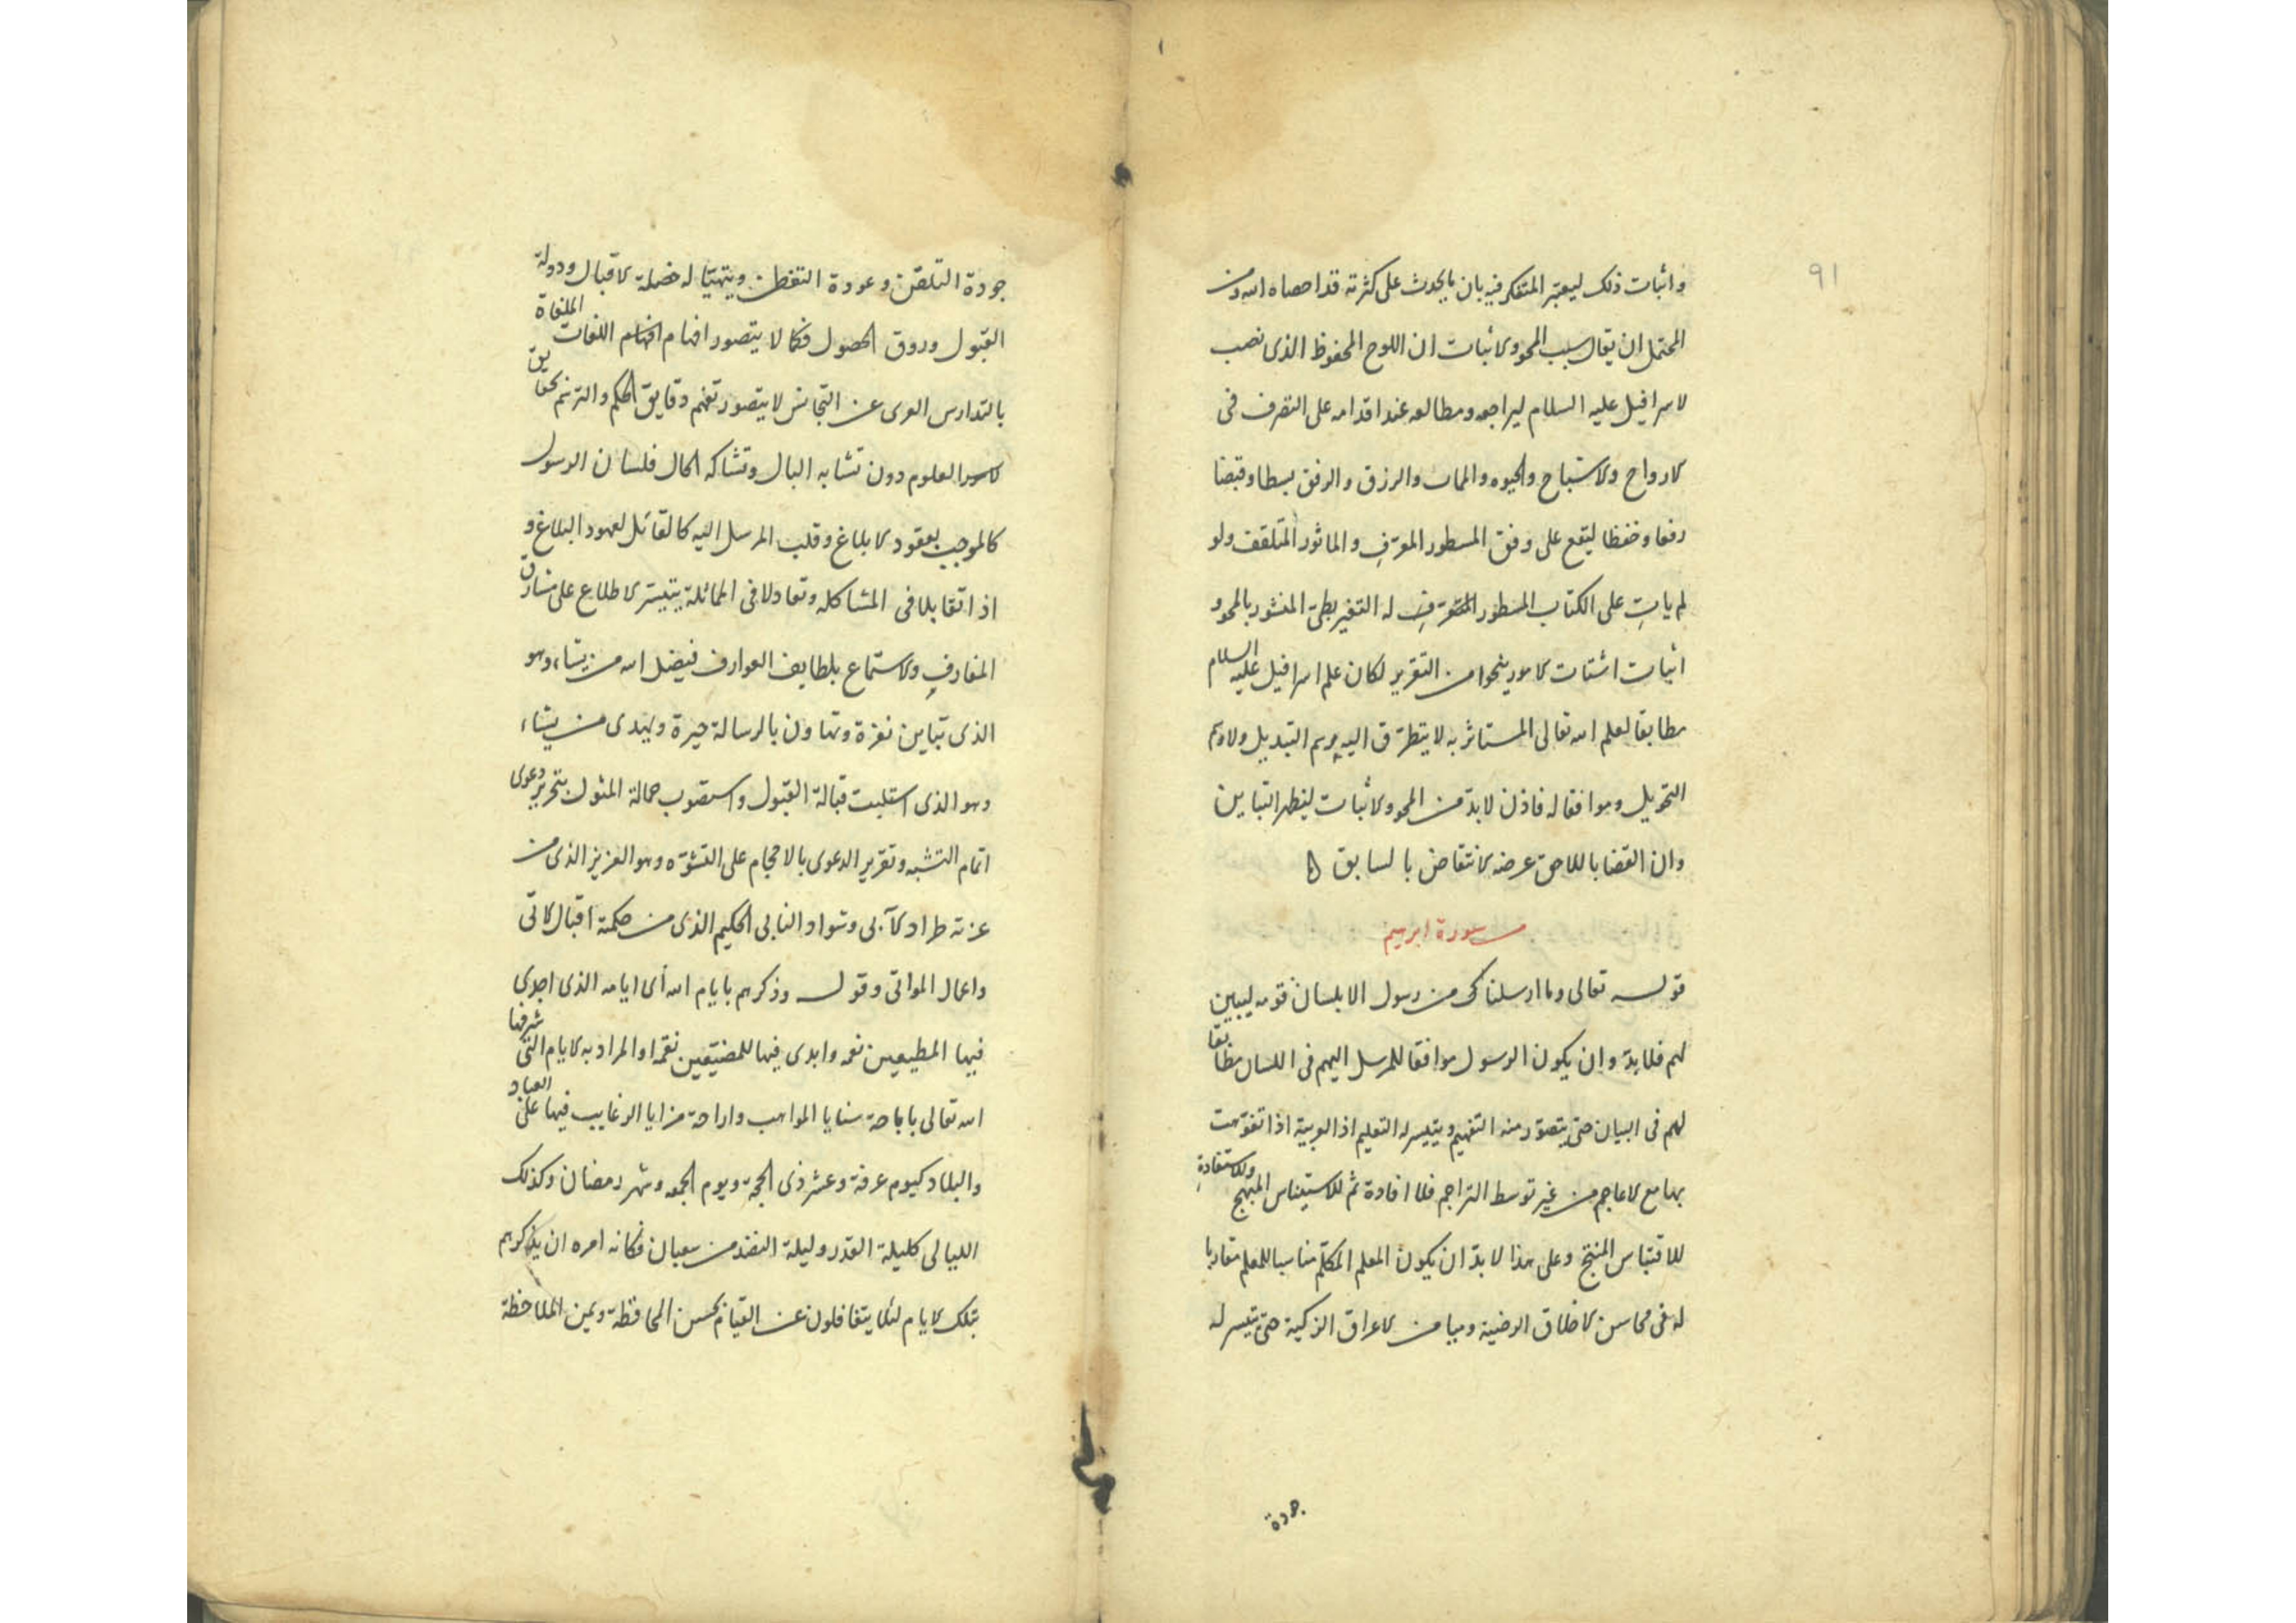 ٩١
واثبات ذلك ليعتبر المتفكر فيه بان ما يحدث على كثرته قد احصاه الله ومن
المحتمل ان يقال سبب المحو والاثبات ان اللوح المحفوظ الذى نصب
لاسرافيل عليه السلام ليراجعه ومطالعه عند اقدامه على التصرف فى
الارواح والاشباح والحيوه والممات والرزق والرفق بسطا وقبضا
رفعا وخفظا ليقع على وفق المسطور المعرّف والماثور المتلقف ولو
لم يات على الكتاب المسطور له التغير بطىّ المنشور بالمحو و
اثبات اشتات الامور ينحوا من التقرير لكان علم اسرافيل عليه السلام
مطابقا لعلم الله تعالى المستاثر به لا يتطرّق اليه رسم التبديل ولا وسم
التحويل وموافقا له فاذن لا بدّ من المحو والاثبات ليظهر التباين
وان القضا باللاحق عرضه لانتقاض بالسابق ه
سورة ابرهيم
قوله تعالى وما ارسلناك من رسول الا بلسان قومه ليبين
لهم فلا بدّ وان يكون الرسول موافقا للمرسل اليهم فى اللسان مطابقا
لهم فى البيان حتى يتصوّر منه التفهيم ويتيسر له التعليم اذ العربية اذا تفوّهت
بها مع الاعاجم من غير توسط التراجم فلا افادة ثم للاستيناس المبهج وللاستفادة
للاقتباس المنتج وعلى هذا لا بدّ ان يكون المعلم المكلّم مناسبا للمعلم متقاربا
له فى محاسن الاخلاق الرضية وميامن الاعراق الزكية حتى تتيسر له
جودة
جودة التلقن وعودة التفطن ويتهيّا له خصلة الاقبال ودولة
القبول وروق الحصول فكما لا يتصور افهام اللغات الملغاة
بالتدارس العرى عن التجانس لا يتصور تفهم دقايق الحكم والترنم بحقايق
العلوم دون تشابه البال وتشاكه الحال فلسان الرسول
كالموجب بعقود الابلاغ وقلب المرسل اليه كالقائل لعهود البلاغ و
اذا تقابلا فى المشاكله وتعادلا فى المماثلة يتيسّر الاطلاع على مشارق
المعارف والاستماع بلطايف العوارف فيضل الله من يشاء وهو
الذى تباين نفرة وتهاون بالرسالة حيرة ويهدى من يشاء
وهو الذى استلبت قبالة القبول واستصوب حمالة المثول بتحرير دعوى
اتمام التشبه وتقرير الدعوى بالاحجام على التشوّه وهو العزيز الذى من
عزته طراد الآبى وشواد النابى الحكيم الذى من حكمته اقبال الاتى
واعمال المواتى وقوله وذكرهم بايام الله أى ايامه الذى اجدى
فيها المطيعين نعمه وابدى فيها للمضيّعين نقما والمراد به الايام التى شرفها
الله تعالى باباحة سنايا المواهب واراحة مزايا الرغايب فيها على العباد
والبلاد كيوم عرفة وعشر ذى الحجة ويوم الجمعه وشهر رمضان وكذلك
الليالى كليلة القدر وليلة النصف من شعبان فكانه امره ان يذكرهم
بتلك الايام لئلا يتغافلون عن القيام بحسن المحافظة ويمن الملاحظة